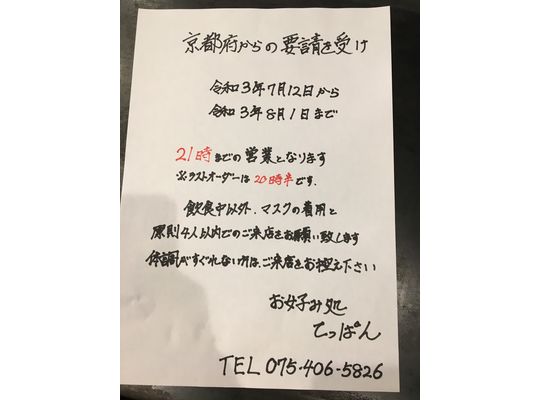 京都府からの要請を受け
令和3年7月12日から
令和3年8月1日まで
21時までの営業となります
※ラストオーダーは20時半です.
飲食中以外、マスクの着用と
原則4人以内でのご来店をお願い致します
体調がすぐれない方は、ご来店をお控え下さい
お好み処
てっぱん
TEL 075-406-5826